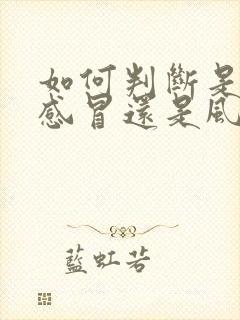 如何判斷是
感冒還是風
藍虹若